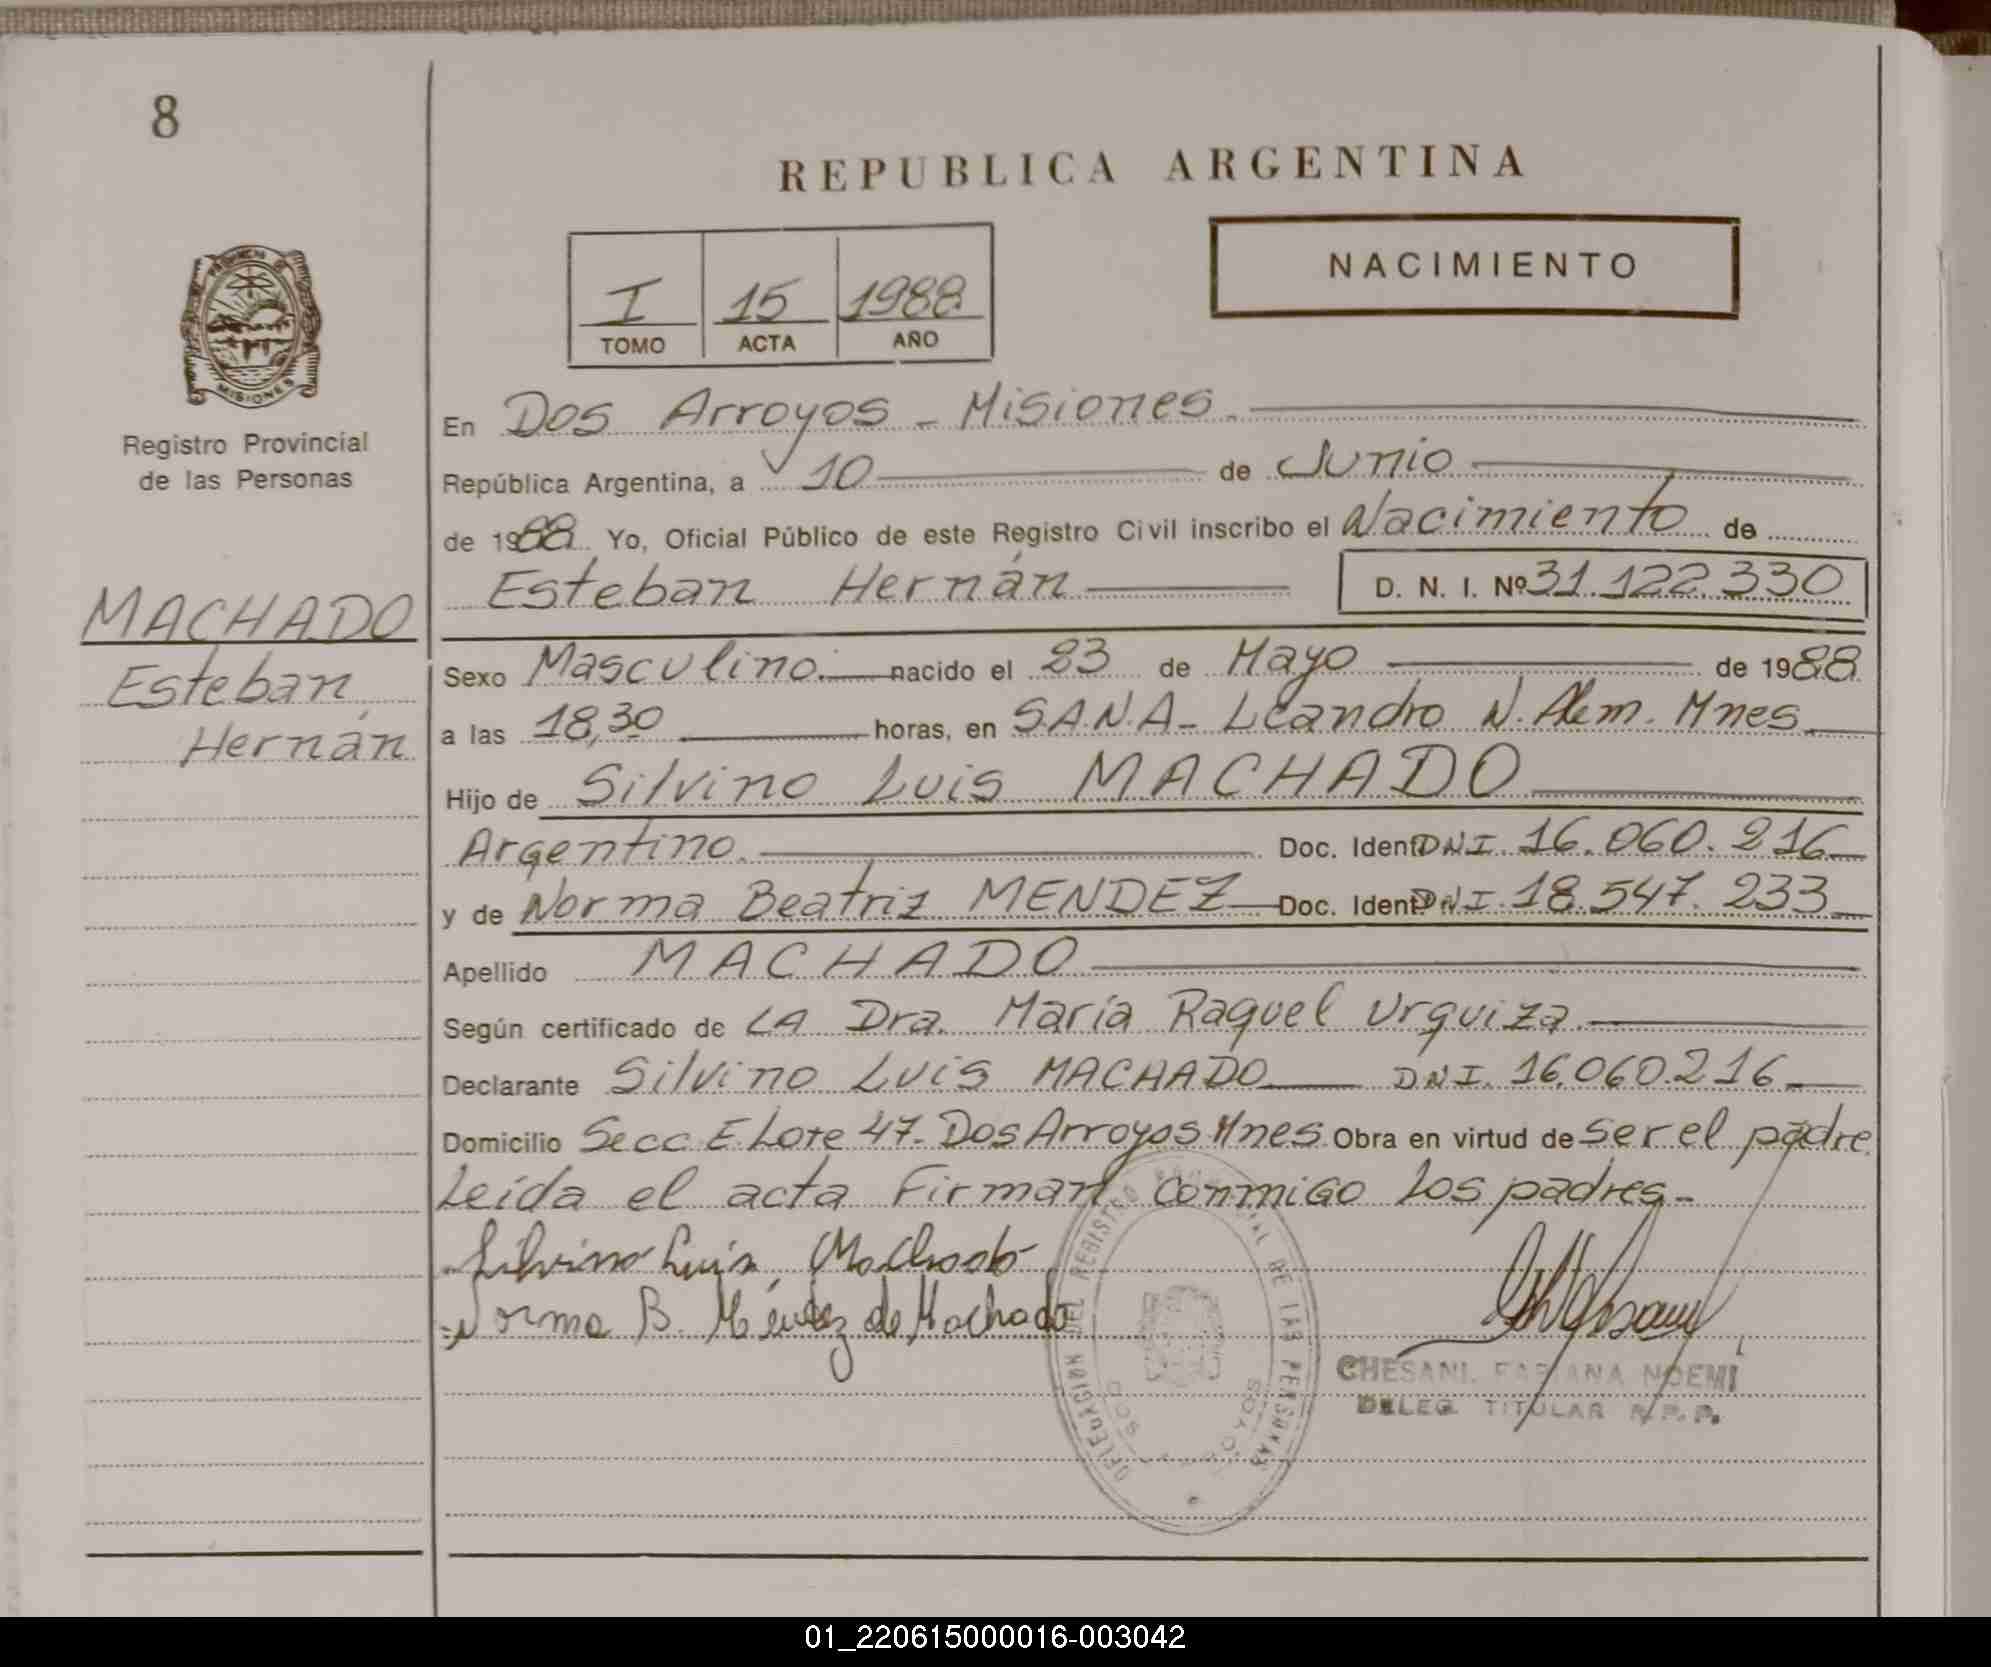 8
REPUBLICA ARGENTINA
NACIMIENTO
I 15 1988
TOMO ACTA AÑO
PROVINCIA DE
MISIONES
Registro Provincial
de las Personas
MACHADO
Esteban
Hernán
En Dos Arroyos - Misiones.
República Argentina, a 10 de Junio
de 1988 Yo, Oficial Público de este Registro Civil inscribo el Nacimiento de
Esteban Hernán D. N. I. Nº 31.122.330
Sexo Masculino. nacido el 23 de Mayo de 1988
a las 18,30 horas, en S.A.N.A- Leandro N. Alem. Mnes
Hijo de Silvino Luis MACHADO
Argentino. Doc. Ident. DNI. 16.060.216
y de Norma Beatriz MENDEZ Doc. Ident. DNI. 18.547.233
Apellido MACHADO
Según certificado de LA Dra. María Raquel Urquiza
Declarante Silvino Luis MACHADO DNI. 16.060.216
Domicilio Secc. E. Lote 47- Dos Arroyos Mnes. Obra en virtud de ser el padre.
Leída el acta Firman conmigo los padres.-
Silvino Luis Machado
Norma B. Méndez de Machado
DELEGACION DEL REGISTRO PROVINCIAL DE LAS PERSONAS
DOS ARROYOS
CHESANI, FABIANA NOEMI
DELEG. TITULAR R.P.P.
01_220615000016-003042